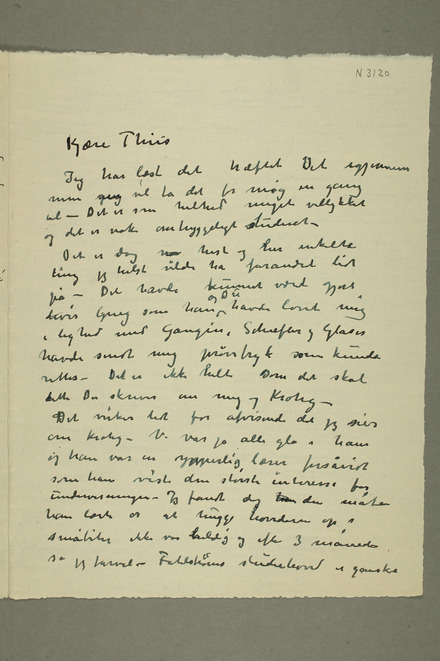 N 3120
Kjære Thiis
Jeg har læst det hæftet Det igjennem
men jeg vil ta det for mig en gang
til – Det er som helhed meget vellykket
og det er nok omhyggeligt studeret –
Det er dog hist og her enkelte
ting jeg helst vilde ha forandret lidt
på – Det havde kunnet været gjort
hvis Grieg som han og Du havde lovet mig
i lighed med Gauguin, Schiefler og Glaser
havde sendt mig prøvetryk som kunde
rettes – Det er ikke helt som det skal
dette Du skriver om mig og Krohg –
Det virker lidt for afvisende det jeg sier
om Krohg – Vi var jo alle gla i ham
og han var en ypperlig lærer forsåvidt
som han viste den største interesse for
undervisningen – Jeg fandt dog den måten
han lærte os at hugge hovederne op i
småbiter ikke var heldig og efter 3 måneder
sa jeg farvel – Fahlstrøms studiehoved er ganske